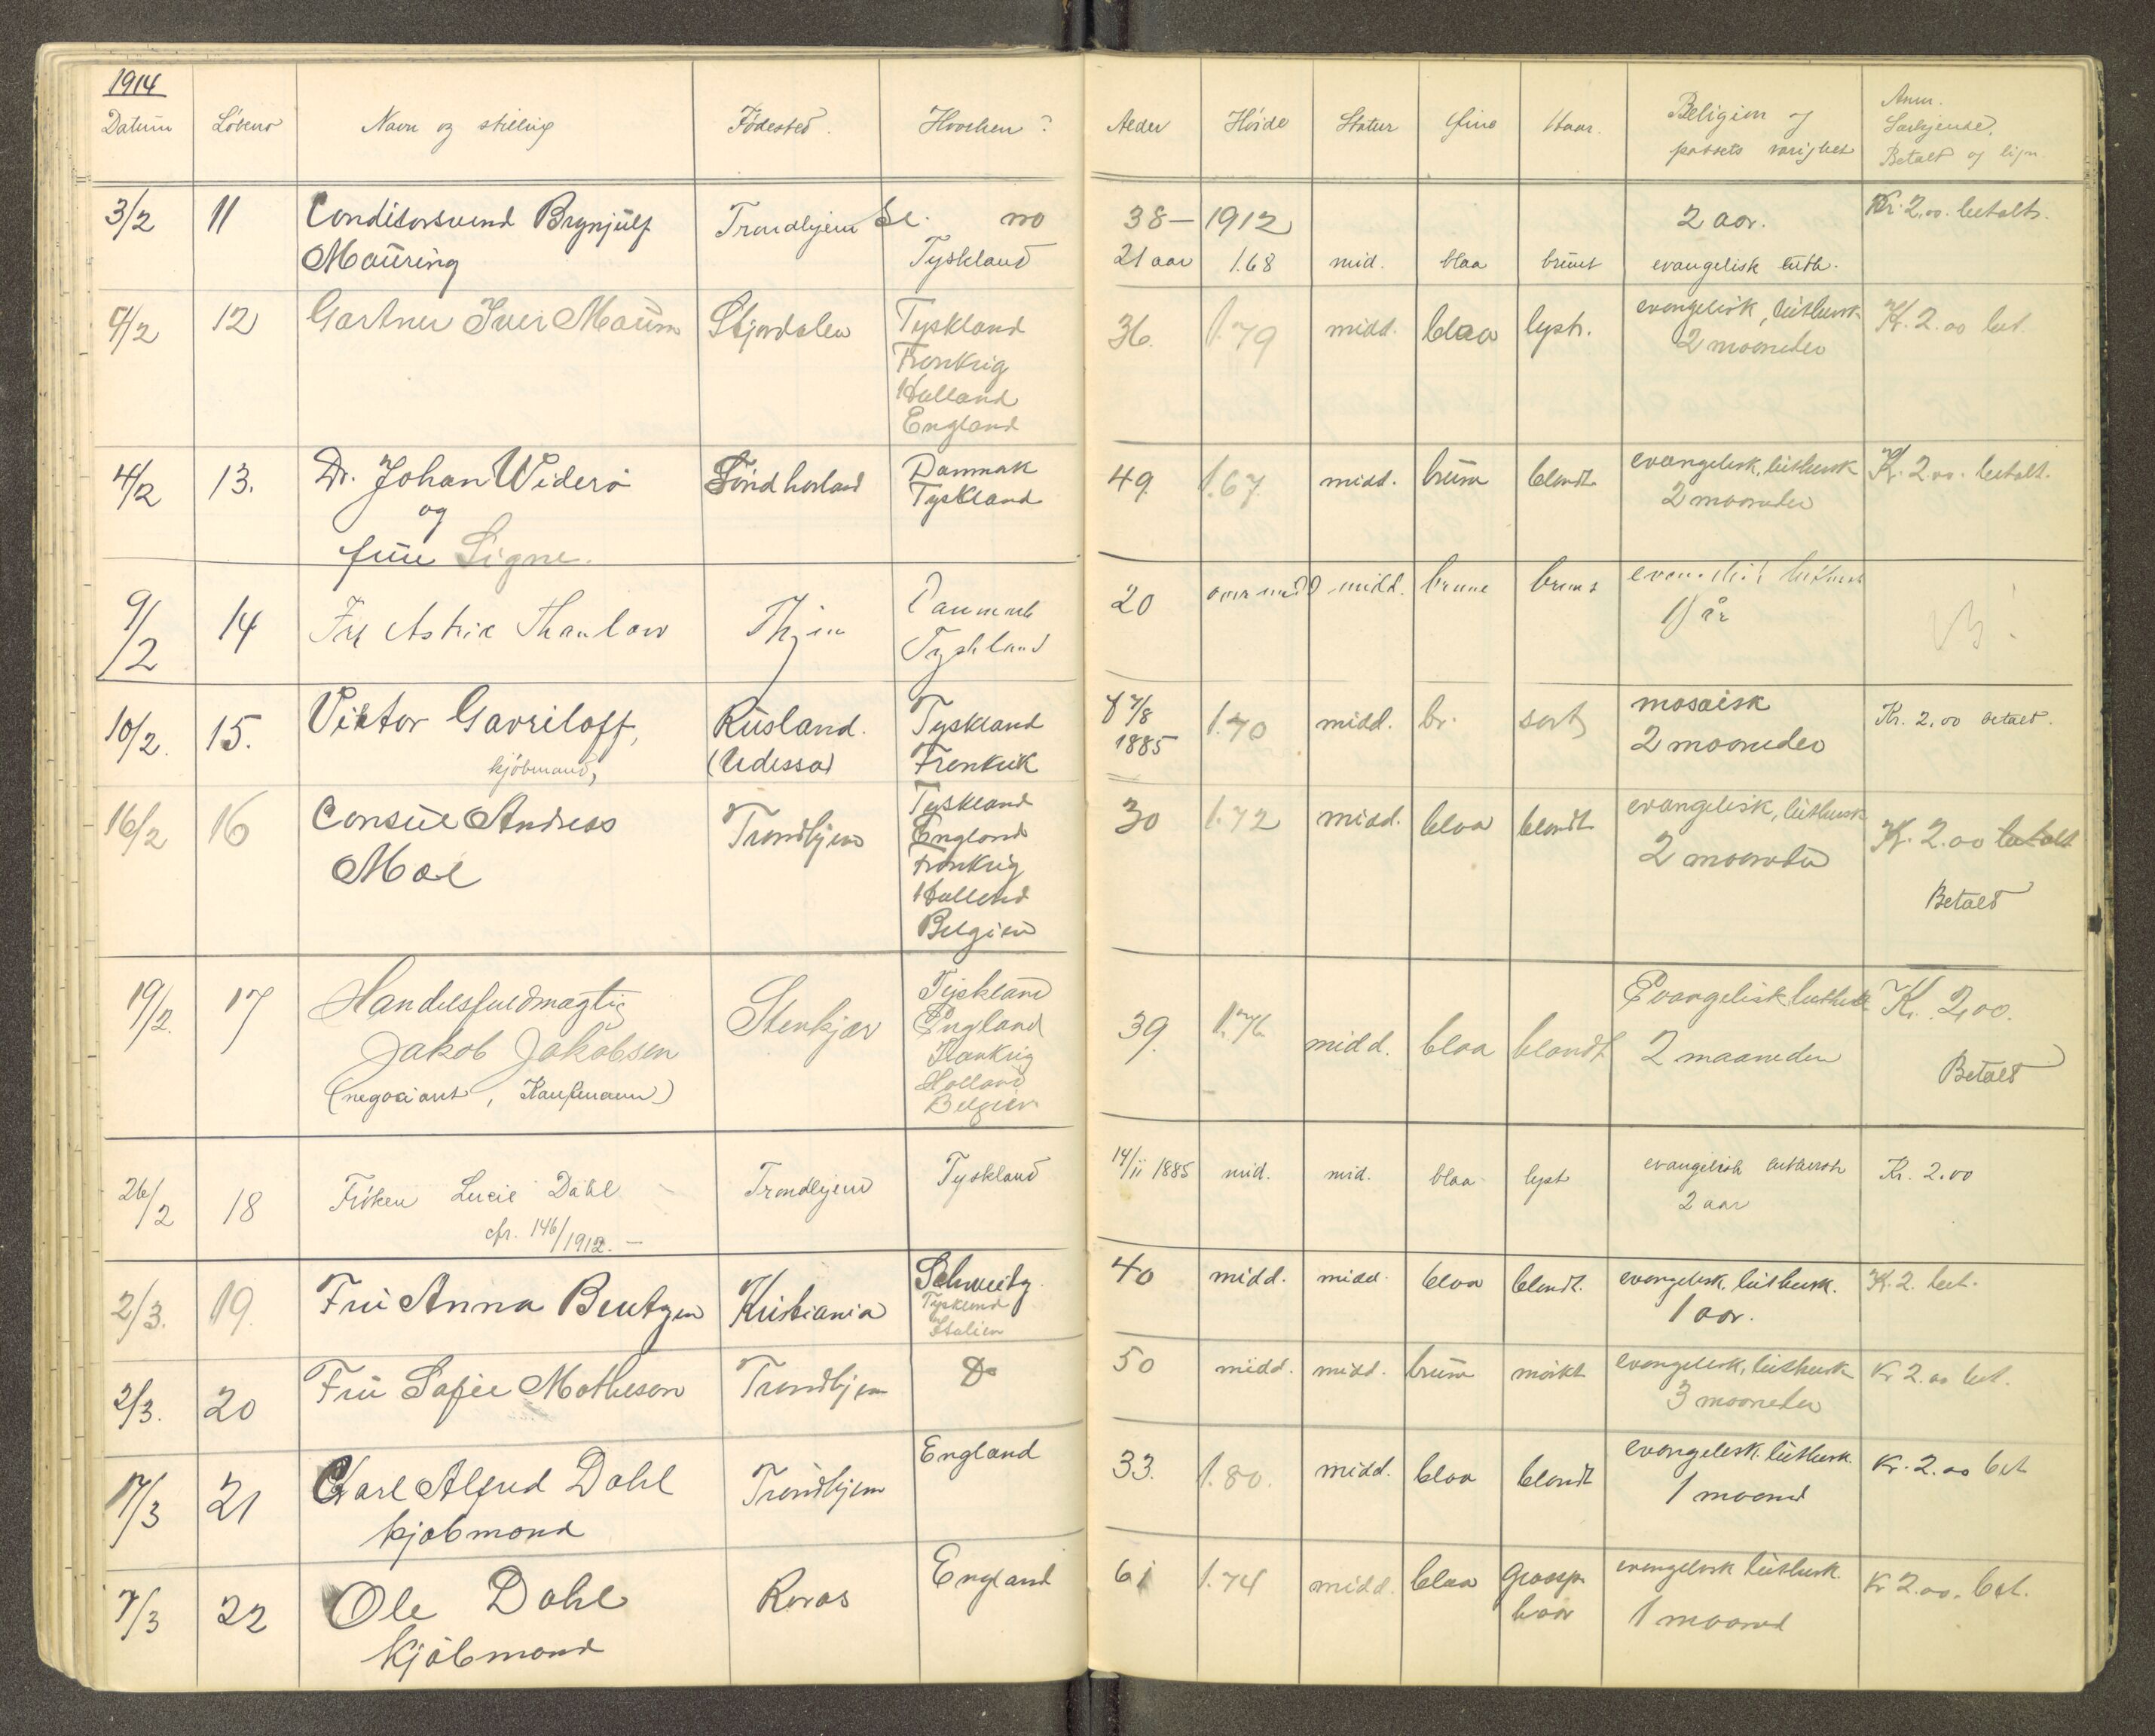 1914
Datum Löbeno Navn og stilling Födested. Hvorhen? Alder Höide Statur Öine Haar. Religion og passets varighet Anm. Særkjende, Betalt og lign.
3/2 11 Conditorsvend Brynjulf Trondhjem Se. no 38 – 1912 2 aar. Kr. 2,00. betalt.
Mauring Tyskland 21 aar 1.68 mid. blaa brunt evangelisk luth.
4/2 12 Gartner Iver Maum Stjordalen Tyskland 36. 1.79 midd. blaa lyst. evangelisk, luthersk Kr. 2.00 bet.
Frankrig 2 maaneder
Holland
England
4/2 13. Dr. Johan Widerö Söndhorland Danmak 49. 1.67. midd. brune blondt evangelisk, luthersk Kr. 2.00. betalt.
og Tyskland 2 maaneder
frue Signe.
9/2 14 Frk Astrid Thaulow Thjem Danmark 20 over midd midd. brune brunt evangelisk luthersk
Tyskland 1 år
10/2. 15. Viktor Gavriloff, Rusland. Tyskland 7/8 1.70 midd. br. sort mosaisk Kr. 2,00 betalt.
kjöbmand, (Odessa) Frankrik 1885 2 maaneder
16/2 16 Consul Andreas Trondhjem Tyskland 30 1.72 midd. blaa blondt evangelisk, luthersk Kr. 2.00 betalt
Moe England 2 maaneder
Frankrig Betalt
Holland
Belgien
19/2. 17 Handelsfuldmægtig Stenkjær Tyskland 39. 1.76 midd. blaa blondt Evangelisk luthersk Kr. 2,00.
Jakob Jakobsen England 2 maaneder
(negociant, Kaufmann) Frankrig Betalt
Holland
Belgien
26/2 18 Fröken Lucie Dahl Trondhjem Tyskland 14/11 1885 mid. mid. blaa lyst evangelisk luthersk Kr. 2.00
cfr. 146/1912. – 2 aar
2/3. 19. Fru Anna Bentzen Kristiania Schweitz. 40 midd. midd. blaa blondt. evangelisk, luthersk. Kr. 2. bet.
Tyskland 1 aar.
Italien
2/3. 20 Fru Sofie Matheson Trondhjem Do 50 midd. midd. brune mörkt evangelisk, luthersk Kr 2.00 bet.
3 maaneder
17/3 21 Carl Alfred Dahl Trondhjem England 33. 1.80. midd. blaa blondt evangelisk. luthersk. Kr. 2.00 bet
kjøbmand 1 maaned
7/3 22 Ole Dahl Røros England 61 1.74 midd. blaa graasp. evangelisk luthersk. Kr 2.00. bet.
kjöbmand haar 1 maaned